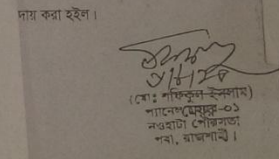 দায় করা হইল।
(মোঃ শফিকুল ইসলাম)
প্যানেল মেয়র-০১
নওহাটা পৌরসভা
পবা, রাজশাহী।